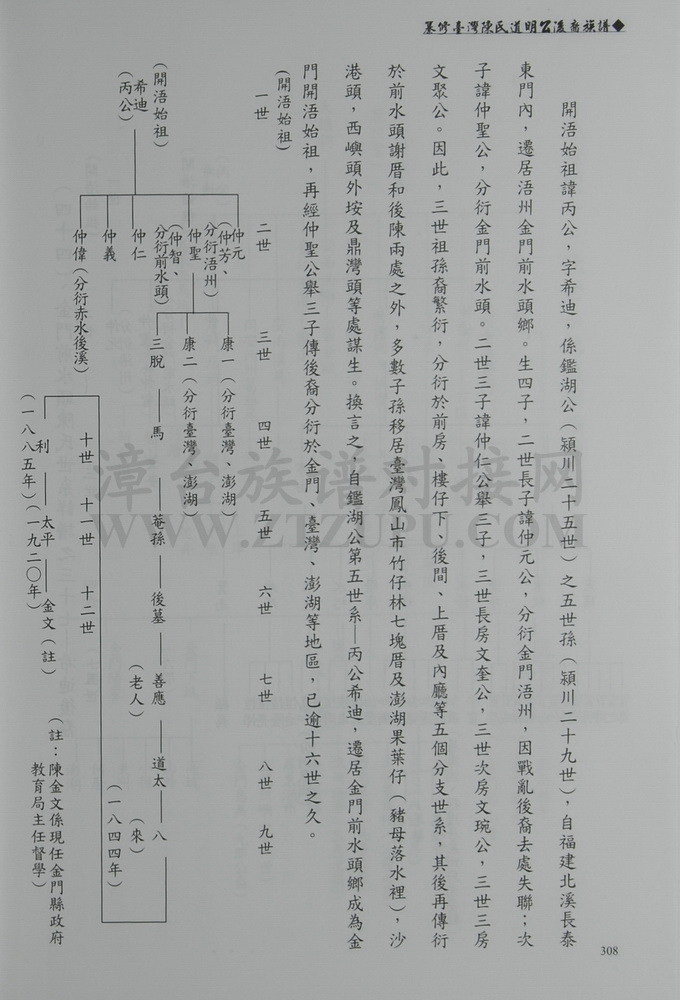 纂修臺灣陳氏道明公後裔族譜◆
開浯始祖諱丙公，字希迪，係鑑湖公（潁川二十五世）之五世孫（潁川二十九世），自福建北溪長泰
東門內，遷居浯州金門前水頭鄉。生四子，二世長子諱仲元公，分衍金門浯州，因戰亂後裔去處失聯；次
子諱仲聖公，分衍金門前水頭。二世三子諱仲仁公舉三子，三世長房文奎公，三世次房文琬公，三世三房
文聚公。因此，三世祖孫裔繁衍，分衍於前房、樓仔下、後間、上厝及內廳等五個分支世系，其後再傳衍
於前水頭謝厝和後陳兩處之外，多數子孫移居臺灣鳳山市竹仔林七塊厝及澎湖果葉仔（豬母落水裡），沙
港頭，西嶼頭外垵及鼎灣頭等處謀生。換言之，自鑑湖公第五世系—丙公希迪，遷居金門前水頭鄉成為金
門開浯始祖，再經仲聖公舉三子傳後裔分衍於金門、臺灣、澎湖等地區，已逾十六世之久。
（開浯始祖）
一世 二世 三世 四世 五世 六世 七世 八世 九世
（開浯始祖）
希迪
（丙公）
仲元
（仲芳、
分衍浯州）
仲聖
（仲智、
分衍前水頭）
仲仁
仲義
仲偉（分衍赤水後溪）
康一（分衍臺灣、澎湖）
康二（分衍臺灣、澎湖）
三脫 馬 菴孫 後墓 善應 道太 八
（老人）
（來）
（一八四四年）
十世 十一世 十二世
利 太平 金文（註）
（一八八五年）（一九二〇年）
（註：陳金文係現任金門縣政府
教育局主任督學）
308
漳台族谱对接网
WWW.ZTZUPU.COM